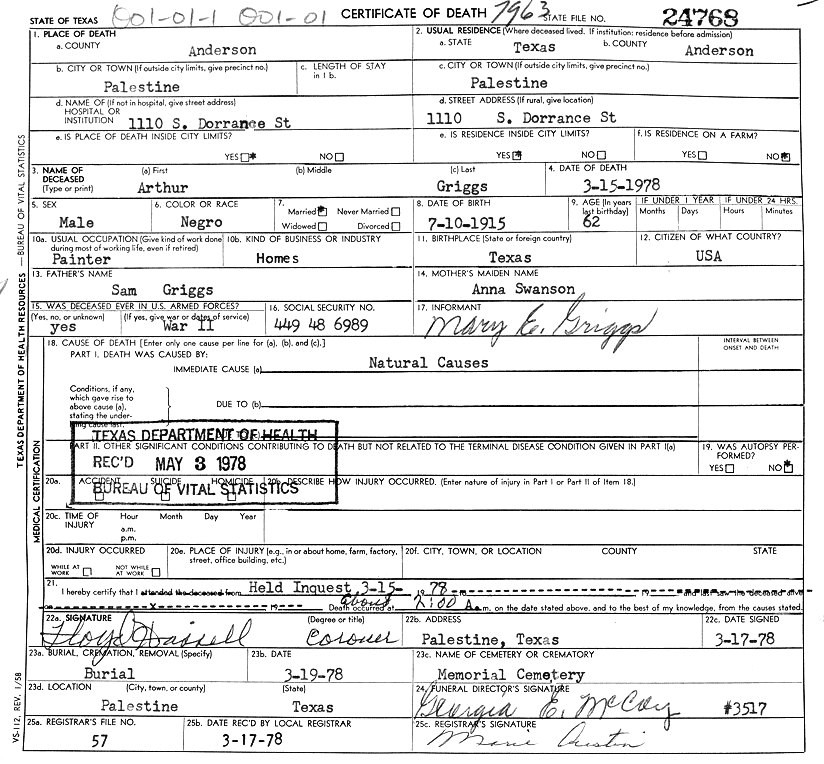 STATE OF TEXAS 001-01-1 001-01 CERTIFICATE OF DEATH 7963 STATE FILE NO. 24768
1. PLACE OF DEATH
a. COUNTY Anderson
2. USUAL RESIDENCE (Where deceased lived. If institution: residence before admission)
a. STATE Texas b. COUNTY Anderson
b. CITY OR TOWN (If outside city limits, give precinct no.) Palestine
c. LENGTH OF STAY in 1 b.
c. CITY OR TOWN (If outside city limits, give precinct no.) Palestine
d. NAME OF (If not in hospital, give street address) HOSPITAL OR INSTITUTION 1110 S. Dorrance St
d. STREET ADDRESS (If rural, give location) 1110 S. Dorrance St
e. IS PLACE OF DEATH INSIDE CITY LIMITS? YES * NO
e. IS RESIDENCE INSIDE CITY LIMITS? YES * NO
f. IS RESIDENCE ON A FARM? YES NO *
3. NAME OF DECEASED (Type or print)
(a) First Arthur
(b) Middle
(c) Last Griggs
4. DATE OF DEATH 3-15-1978
5. SEX Male
6. COLOR OR RACE Negro
7. Married * Never Married Widowed Divorced
8. DATE OF BIRTH 7-10-1915
9. AGE (In years last birthday) 62
IF UNDER 1 YEAR Months Days
IF UNDER 24 HRS. Hours Minutes
10a. USUAL OCCUPATION (Give kind of work done during most of working life, even if retired) Painter
10b. KIND OF BUSINESS OR INDUSTRY Homes
11. BIRTHPLACE (State or foreign country) Texas
12. CITIZEN OF WHAT COUNTRY? USA
13. FATHER'S NAME Sam Griggs
14. MOTHER'S MAIDEN NAME Anna Swanson
15. WAS DECEASED EVER IN U.S. ARMED FORCES?
(Yes, no, or unknown) yes
(If yes, give war or dates of service) War II
16. SOCIAL SECURITY NO. 449 48 6989
17. INFORMANT Mary E. Griggs
18. CAUSE OF DEATH [Enter only one cause per line for (a), (b), and (c).]
INTERVAL BETWEEN ONSET AND DEATH
PART I. DEATH WAS CAUSED BY:
IMMEDIATE CAUSE (a) Natural Causes
Conditions, if any, which gave rise to above cause (a), stating the underlying cause last.
DUE TO (b)
TEXAS DEPARTMENT OF HEALTH
REC'D MAY 3 1978
BUREAU OF VITAL STATISTICS
PART II. OTHER SIGNIFICANT CONDITIONS CONTRIBUTING TO DEATH BUT NOT RELATED TO THE TERMINAL DISEASE CONDITION GIVEN IN PART I(a)
19. WAS AUTOPSY PERFORMED? YES NO *
20a. ACCIDENT SUICIDE HOMICIDE
20b. DESCRIBE HOW INJURY OCCURRED. (Enter nature of injury in Part I or Part II of Item 18.)
20c. TIME OF INJURY Hour Month Day Year
a.m.
p.m.
20d. INJURY OCCURRED
WHILE AT WORK NOT WHILE AT WORK
20e. PLACE OF INJURY (e.g., in or about home, farm, factory, street, office building, etc.)
20f. CITY, TOWN, OR LOCATION COUNTY STATE
21. I hereby certify that I attended the deceased from Held Inquest 3-15- 19 78 to 19 and last saw the deceased alive
on x 19 Death occurred at about 2:00 A.m. on the date stated above, and to the best of my knowledge, from the causes stated.
22a. SIGNATURE (Degree or title) Floyd Hassell Coroner
22b. ADDRESS Palestine, Texas
22c. DATE SIGNED 3-17-78
23a. BURIAL, CREMATION, REMOVAL (Specify) Burial
23b. DATE 3-19-78
23c. NAME OF CEMETERY OR CREMATORY Memorial Cemetery
23d. LOCATION (City, town, or county) Palestine (State) Texas
24. FUNERAL DIRECTOR'S SIGNATURE Georgia E. McCoy #3517
25a. REGISTRAR'S FILE NO. 57
25b. DATE REC'D BY LOCAL REGISTRAR 3-17-78
25c. REGISTRAR'S SIGNATURE Marie Austin
TEXAS DEPARTMENT OF HEALTH RESOURCES — BUREAU OF VITAL STATISTICS
MEDICAL CERTIFICATION
VS-112, REV. 1/58